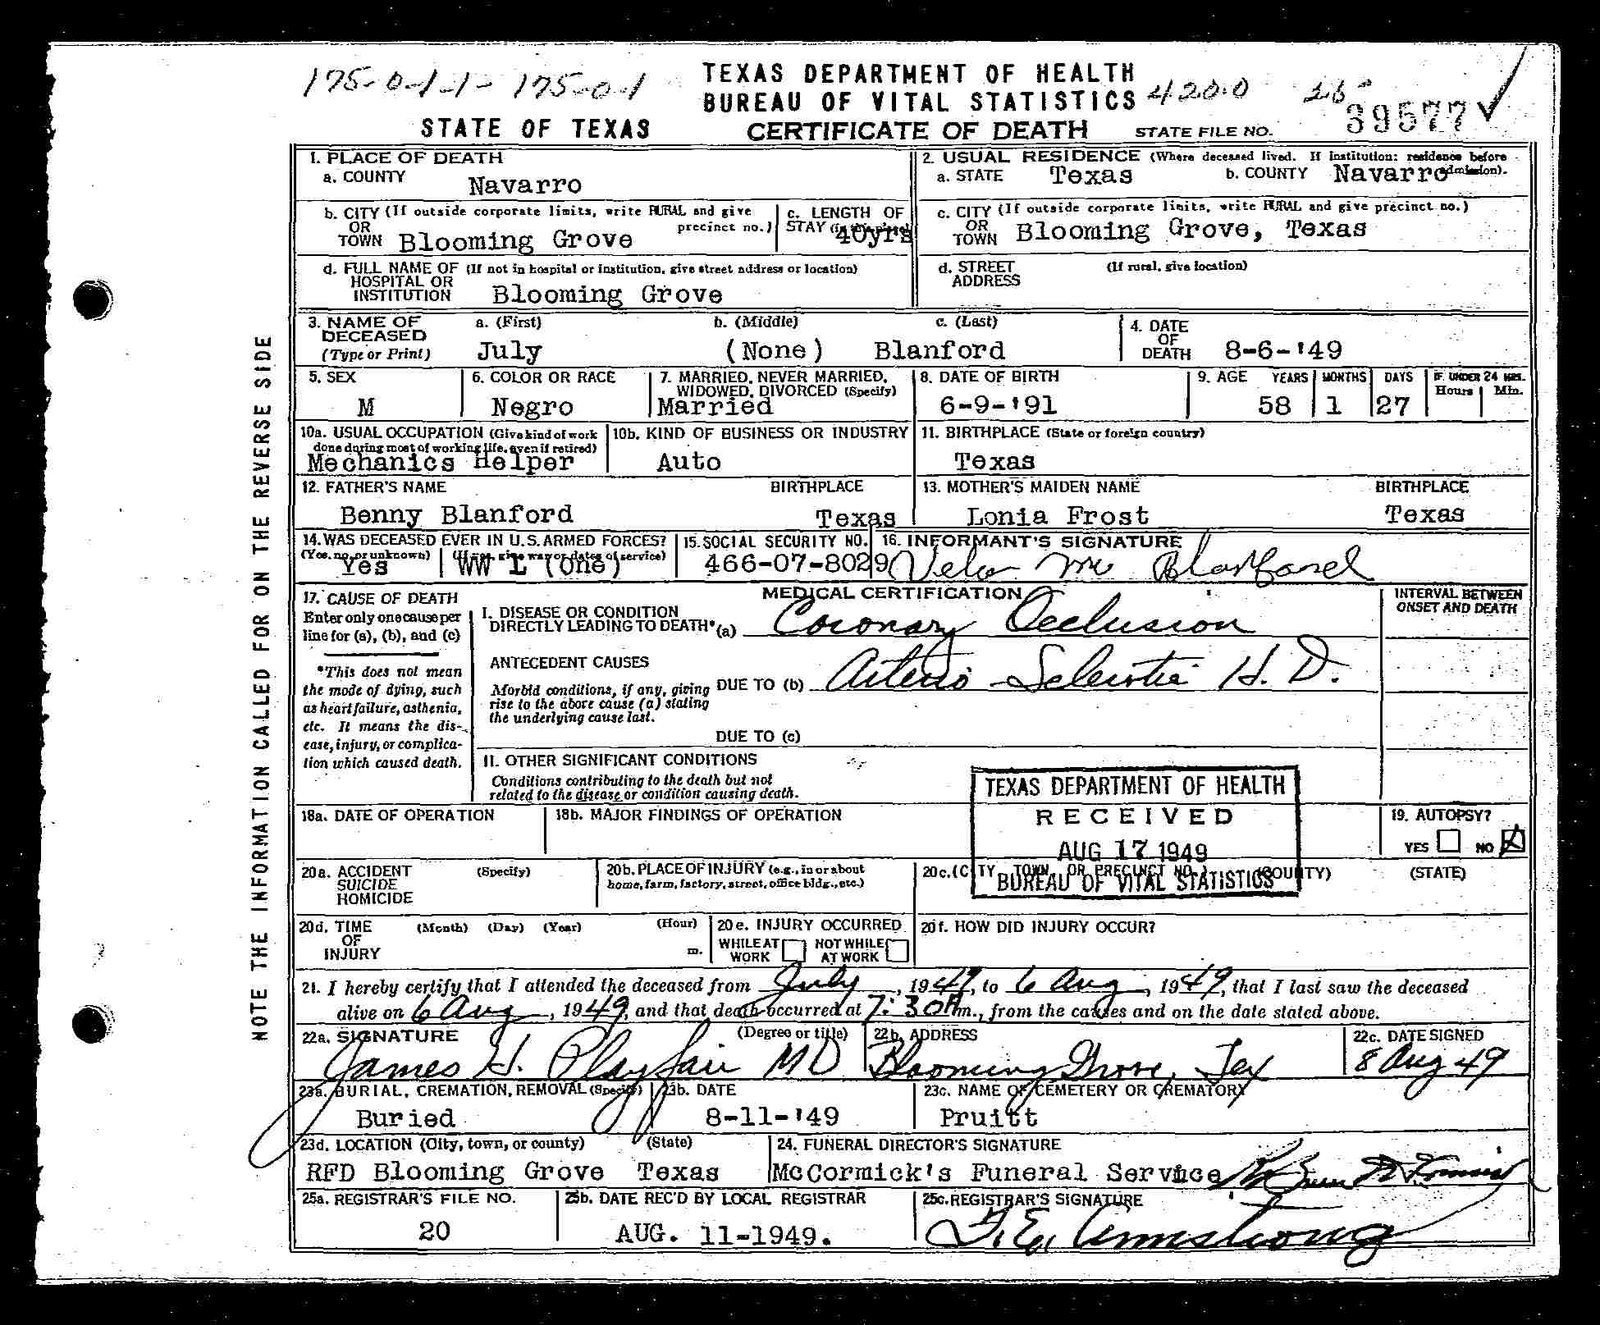 175-0-1-1- 175-0-1
TEXAS DEPARTMENT OF HEALTH
BUREAU OF VITAL STATISTICS 420.0 26-
STATE OF TEXAS CERTIFICATE OF DEATH STATE FILE NO. 39577
1. PLACE OF DEATH
a. COUNTY Navarro
2. USUAL RESIDENCE (Where deceased lived. If institution: residence before admission).
a. STATE Texas b. COUNTY Navarro
b. CITY (If outside corporate limits, write RURAL and give precinct no.)
OR
TOWN Blooming Grove
c. LENGTH OF
STAY 40yrs
c. CITY (If outside corporate limits, write RURAL and give precinct no.)
OR
TOWN Blooming Grove, Texas
d. FULL NAME OF (If not in hospital or institution, give street address or location)
HOSPITAL OR
INSTITUTION Blooming Grove
d. STREET (If rural, give location)
ADDRESS
3. NAME OF DECEASED (Type or Print)
a. (First) b. (Middle) c. (Last)
July (None) Blanford
4. DATE OF DEATH 8-6-'49
5. SEX
M
6. COLOR OR RACE
Negro
7. MARRIED, NEVER MARRIED, WIDOWED, DIVORCED (Specify)
Married
8. DATE OF BIRTH
6-9-'91
9. AGE YEARS MONTHS DAYS IF UNDER 24 HRS. Hours Min.
58 1 27
10a. USUAL OCCUPATION (Give kind of work done during most of working life, even if retired)
Mechanics Helper
10b. KIND OF BUSINESS OR INDUSTRY
Auto
11. BIRTHPLACE (State or foreign country)
Texas
12. FATHER'S NAME BIRTHPLACE
Benny Blanford Texas
13. MOTHER'S MAIDEN NAME BIRTHPLACE
Lonia Frost Texas
14. WAS DECEASED EVER IN U.S. ARMED FORCES?
(Yes, no, or unknown) (If yes, give war or dates of service)
Yes WW L (One)
15. SOCIAL SECURITY NO.
466-07-8029
16. INFORMANT'S SIGNATURE
17. CAUSE OF DEATH
Enter only one cause per line for (a), (b), and (c)
*This does not mean the mode of dying, such as heart failure, asthenia, etc. It means the disease, injury, or complication which caused death.
MEDICAL CERTIFICATION
INTERVAL BETWEEN ONSET AND DEATH
I. DISEASE OR CONDITION
DIRECTLY LEADING TO DEATH* (a) Coronary Occlusion
ANTECEDENT CAUSES
Morbid conditions, if any, giving rise to the above cause (a) stating the underlying cause last.
DUE TO (b) Arterio Sclerotic H. D.
DUE TO (c)
II. OTHER SIGNIFICANT CONDITIONS
Conditions contributing to the death but not related to the disease or condition causing death.
TEXAS DEPARTMENT OF HEALTH
RECEIVED
AUG 17 1949
BUREAU OF VITAL STATISTICS
18a. DATE OF OPERATION
18b. MAJOR FINDINGS OF OPERATION
19. AUTOPSY?
YES NO X
20a. ACCIDENT (Specify)
SUICIDE
HOMICIDE
20b. PLACE OF INJURY (e.g., in or about home, farm, factory, street, office bldg., etc.)
20c. (CITY, TOWN, OR PRECINCT NO.) (COUNTY) (STATE)
20d. TIME OF INJURY (Month) (Day) (Year) (Hour) m.
20e. INJURY OCCURRED
WHILE AT WORK NOT WHILE AT WORK
20f. HOW DID INJURY OCCUR?
21. I hereby certify that I attended the deceased from July, 1949, to 6 Aug, 1949, that I last saw the deceased
alive on 6 Aug, 1949, and that death occurred at 7:30 P m., from the causes and on the date stated above.
22a. SIGNATURE (Degree or title)
James H. Playfair MD
22b. ADDRESS
Blooming Grove, Tex
22c. DATE SIGNED
8 Aug 49
23a. BURIAL, CREMATION, REMOVAL (Specify)
Buried
23b. DATE
8-11-'49
23c. NAME OF CEMETERY OR CREMATORY
Pruitt
23d. LOCATION (City, town, or county) (State)
RFD Blooming Grove Texas
24. FUNERAL DIRECTOR'S SIGNATURE
McCormick's Funeral Service
25a. REGISTRAR'S FILE NO.
20
25b. DATE REC'D BY LOCAL REGISTRAR
AUG. 11-1949.
25c. REGISTRAR'S SIGNATURE
F. E. Armstrong
NOTE THE INFORMATION CALLED FOR ON THE REVERSE SIDE